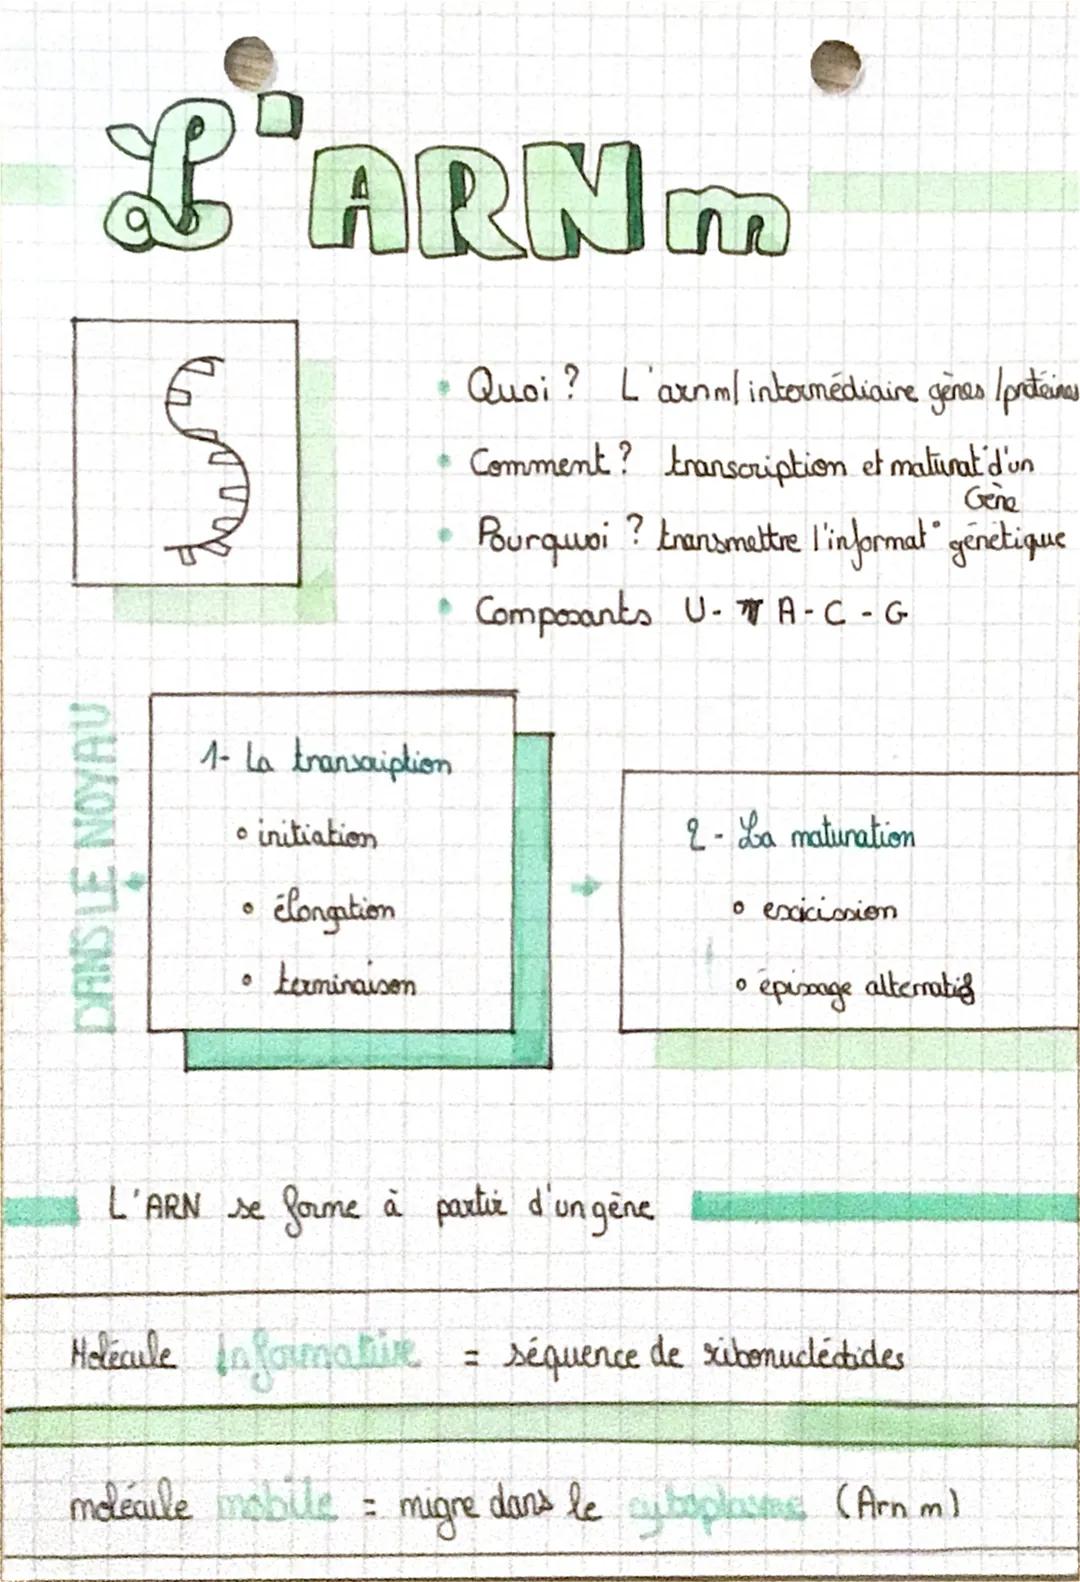 L'ARN m
• Quoi ? L'arnm/ intermédiaire gènes /protéines
• Comment ? transcription et maturat° d'un
Gène
• Pourquoi ? transmettre l'informat° génétique
• Composants U - A - C - G
DANS LE NOYAU
1- La transcription
• initiation
• élongation
• terminaison
2 - La maturation
• excicission
• épissage alternatif
L'ARN se forme à partir d'un gène
Molécule Informative = séquence de ribonucléotides
molécule mobile = migre dans le cytoplasme (Arn m)